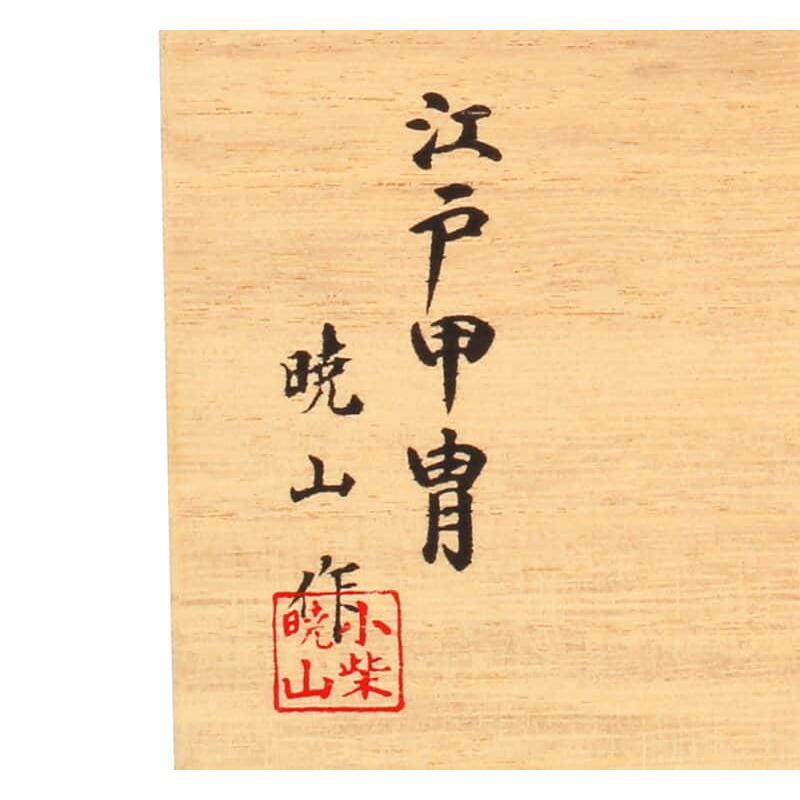 江戸甲冑
暁山作
小柴
暁山